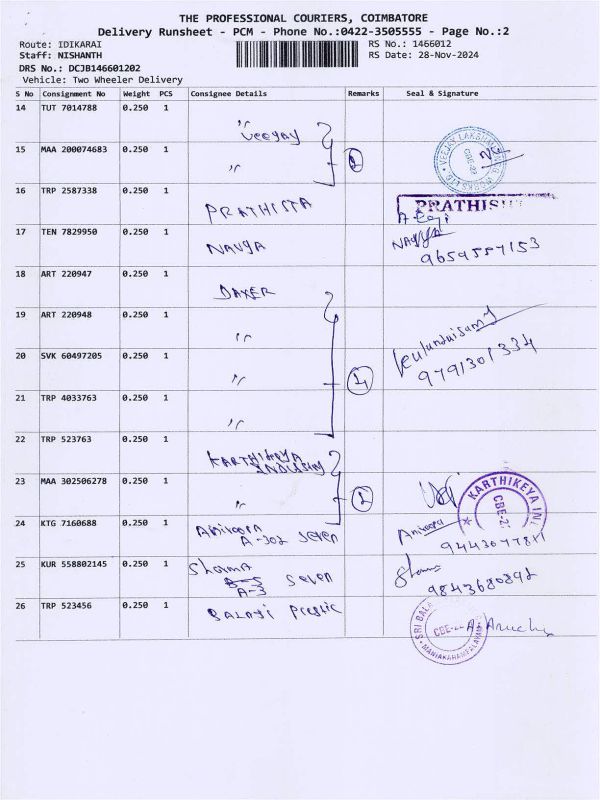 THE PROFESSIONAL COURIERS, COIMBATORE
Delivery Runsheet - PCM - Phone No.:0422-3505555 - Page No.:2
Route: IDIKARAI
RS No.: 1466012
Staff: NISHANTH
RS Date: 28-Nov-2024
DRS No.: DCJB146601202
Vehicle: Two Wheeler Delivery
S No Consignment No Weight PCS Consignee Details Remarks Seal & Signature
14 TUT 7014788 0.250 1 〃 Veejay
15 MAA 200074683 0.250 1 〃
VEEJAY LAKSHMI
CBE-22
16 TRP 2587338 0.250 1 PRATHISTA PRATHIS
17 TEN 7829950 0.250 1 NAVYA NAVYA
9659557153
18 ART 220947 0.250 1 DAXER
19 ART 220948 0.250 1 〃
20 SVK 60497205 0.250 1 〃
9791301334
21 TRP 4033763 0.250 1 〃
22 TRP 523763 0.250 1 KARTHIKEYA
23 MAA 302506278 0.250 1 〃
KARTHIKEYA IN
CBE-2
24 KTG 7160688 0.250 1
A-302 Seven
25 KUR 558802145 0.250 1 Sharma
Seven
A-3
Sharma
9843680892
26 TRP 523456 0.250 1 BALAJI
SRI BALA
CBE-22
MANIAKARAMPALAYAM